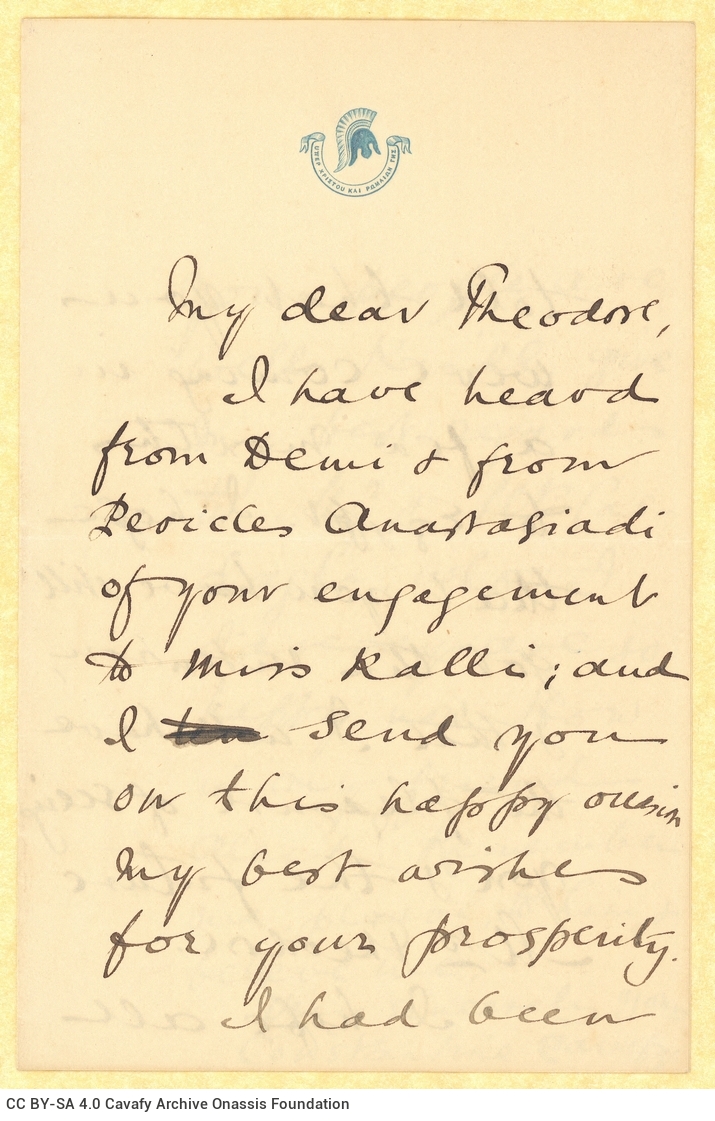 ΥΠΕΡ ΧΡΙΣΤΟΥ ΚΑΙ ΡΩΜΑΙΩΝ ΤΗΣ
My dear Theodore,
I have heard
from Demi & from
Pericles Anastasiadi
of your engagement
to Miss Ralli; and
I send you
on this happy occasion
my best wishes
for your prosperity.
I had been
CC BY-SA 4.0 Cavafy Archive Onassis Foundation